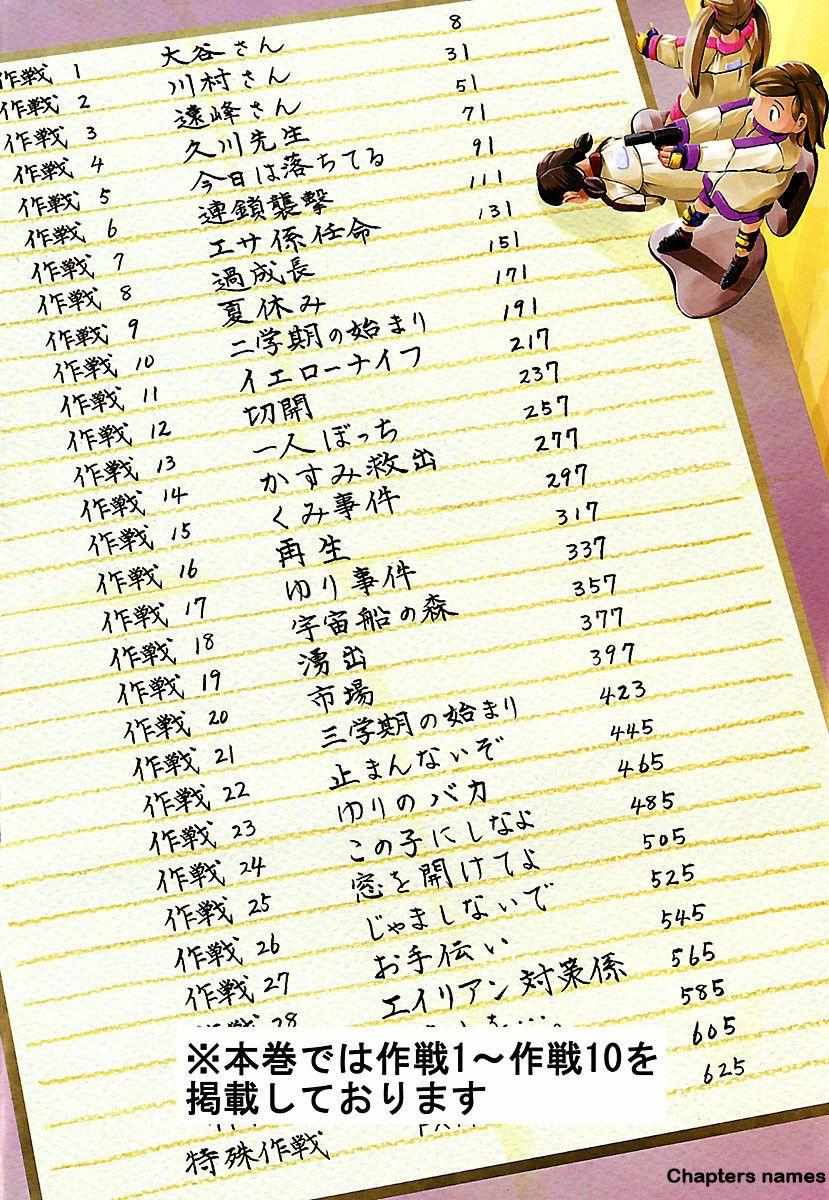 作戦 1 大谷さん 8
作戦 2 川村さん 31
作戦 3 遠峰さん 51
作戦 4 久川先生 71
作戦 5 今日は落ちてる 91
作戦 6 連鎖襲撃 111
作戦 7 エサ係任命 131
作戦 8 過成長 151
作戦 9 夏休み 171
作戦 10 二学期の始まり 191
作戦 11 イエローナイフ 217
作戦 12 切開 237
作戦 13 一人ぼっち 257
作戦 14 かすみ救出 277
作戦 15 くみ事件 297
作戦 16 再生 317
作戦 17 ゆり事件 337
作戦 18 宇宙船の森 357
作戦 19 湧出 377
作戦 20 市場 397
作戦 21 三学期の始まり 423
作戦 22 止まんないぞ 445
作戦 23 ゆりのバカ 465
作戦 24 この子にしなよ 485
作戦 25 窓を開けてよ 505
作戦 26 じゃましないで 525
作戦 27 お手伝い 545
作戦 28 エイリアン対策係 565
585
605
特殊作戦 625
※本巻では作戦1〜作戦10を
掲載しております
Chapters names